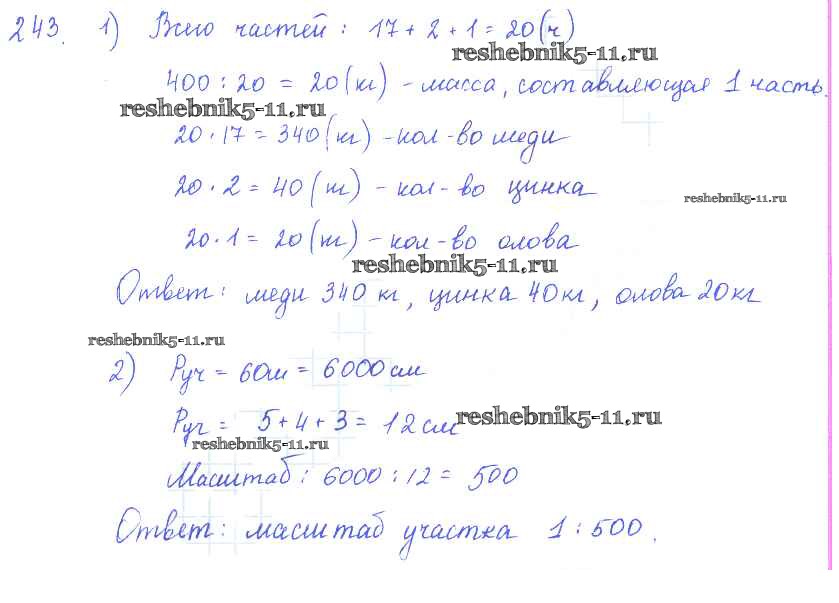 243. 1) Всего частей : 17 + 2 + 1 = 20 (ч)
reshebnik5-11.ru
400 : 20 = 20 (кг) - масса, составляющая 1 часть.
reshebnik5-11.ru
20 · 17 = 340 (кг) - кол-во меди
20 · 2 = 40 (кг) - кол-во цинка
reshebnik5-11.ru
20 · 1 = 20 (кг) - кол-во олова
reshebnik5-11.ru
Ответ : меди 340 кг, цинка 40 кг, олова 20 кг
reshebnik5-11.ru
2) Руч = 60м = 6000 см
Руч = 5 + 4 + 3 = 12 см
reshebnik5-11.ru
reshebnik5-11.ru
Масштаб : 6000 : 12 = 500
Ответ : масштаб участка 1 : 500.